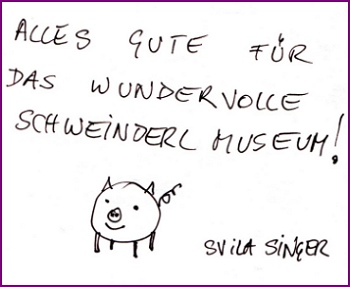 ALLES GUTE FÜR
DAS WUNDERVOLLE
SCHWEINDERL MUSEUM!
SVILA SINGER